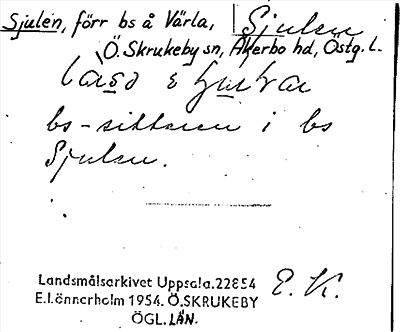 Sjulen, förr bs å Värla, Sjulen
Ö. Skrukeby sn, Åkerbo hd, Östg. l.
bs-sittaren i bs
Sjulen.
Landsmålsarkivet Uppsala. 22854 E. K.
E. Lönnerholm 1954. Ö. SKRUKEBY
ÖGL. LÄN.